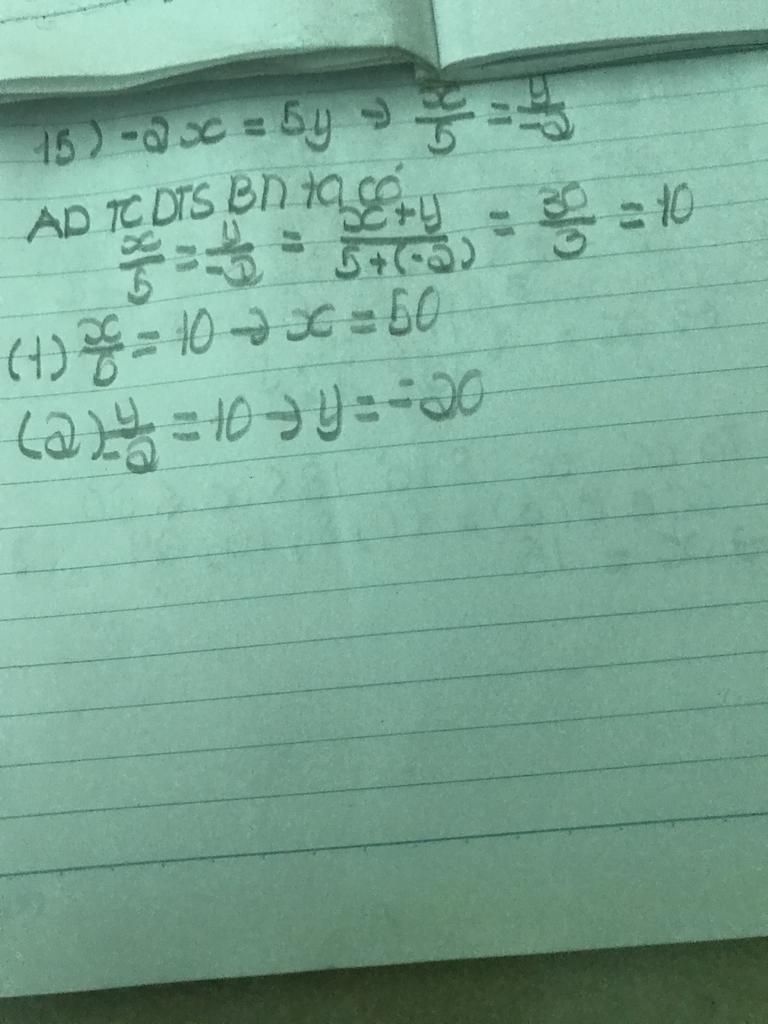 15) -2x = 5y → x/5 = y/-2
AD TC DTS BN ta có
x/5 = y/-2 = x+y/5+(-2) = 30/3 = 10
(1) x/5 = 10 → x = 50
(2) y/-2 = 10 → y = -20